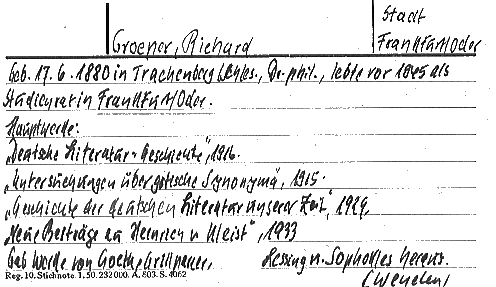 Stadt
Groeper, Richard Frankfurt/Oder
Geb. 17.6.1880 in Trachenberg /Schles., Dr. phil., lebte vor 1945 als
Studienrat in Frankfurt/Oder.
Hauptwerke:
„Deutsche Literatur-Geschichte", 1916.
„Untersuchungen über gotische Synonyma", 1915.
„Geschichte der deutschen Literatur unserer Zeit", 1929.
„Neue Beiträge zu Heinrich v. Kleist", 1933
Gab Werke von Goethe, Grillparzer, Lessing u. Sophokles heraus.
Reg. 10. Stichnote. 1. 50. 232000. A. 803. S. 4062